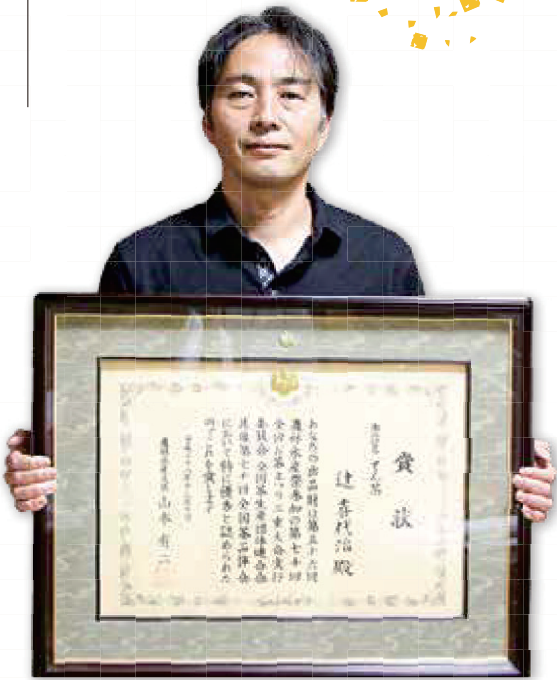 賞状
てん茶
辻 喜代治 殿
あなたの出品財は第五十六回
農林水産祭参加の第七十回
全国お茶まつり三重大会実行
委員会 全国茶生産団体連合会
共催第七十回全国茶品評会
において特に優秀と認められた
のでこれを賞します
農林水産大臣 山本有二